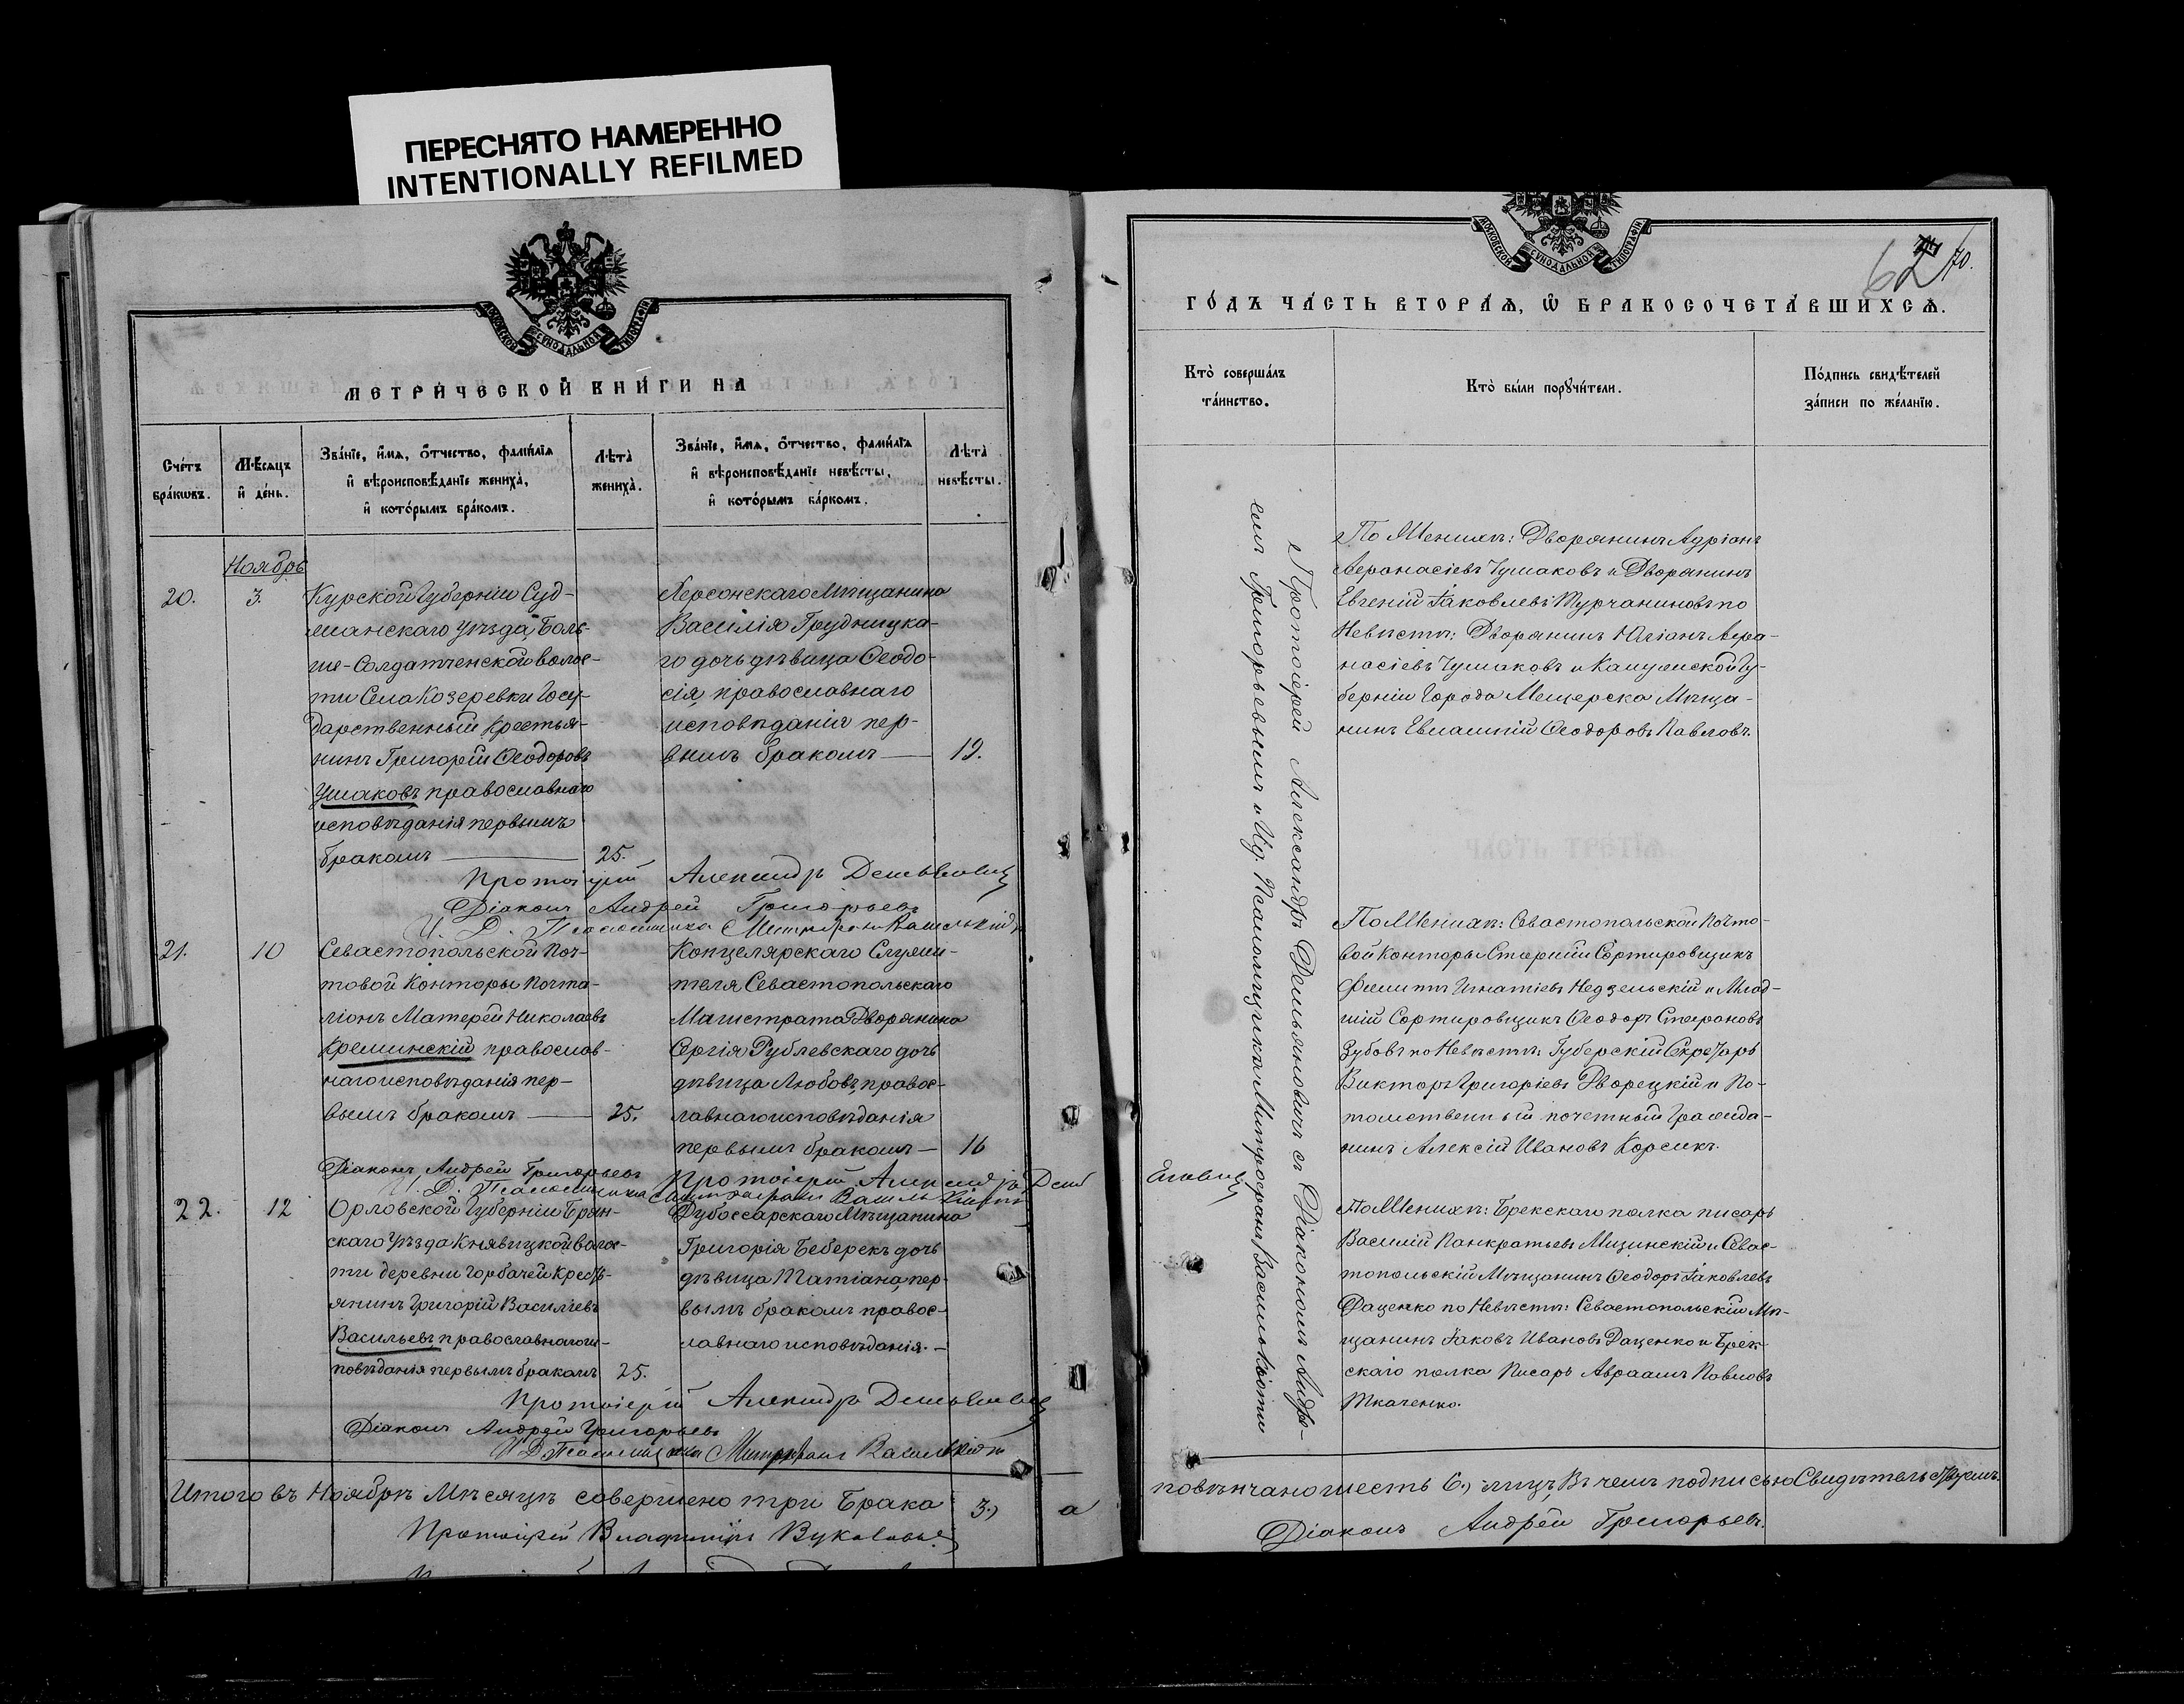 ПЕРЕСНЯТО НАМЕРЕННО
INTENTIONALLY REFILMED
МОСКОВСКОЙ СѴНОДАЛЬНОЙ ТИПОГРАФІИ
МЕТРИ́ЧЕСКОЙ КНИ́ГИ НА
Сче́тъ бра́кωвъ.
Мѣ́сѧцъ и҆ де́нь.
Зва́нїе, и҆́мѧ, ѻ҆́тчество, фами́лїѧ
и҆ вѣроисповѣ́данїе жениха̀,
и҆ кото́рымъ бра́комъ.
Лѣта̀ жениха̀.
Зва́нїе, и҆́мѧ, ѻ҆́тчество, фами́лїѧ
и҆ вѣроисповѣ́данїе невѣ́сты,
и҆ кото́рымъ ба́ркомъ.
Лѣта̀ невѣ́сты.
Ноябрь
20.
3.
Курской Губерніи Суд-
жанскаго уѣзда, Боль-
ше-Солдатченской волос-
ти Села Козеревки Госу-
дарственный Крестья-
нинъ Григорій Ѳеодоровъ
Ушаковъ православнаго
исповѣданія первымъ
бракомъ
25.
Херсонскаго Мѣщанина
Василія Грудницка-
го дочь дѣвица Ѳеодо-
сія, православнаго
исповѣданія пер-
вымъ бракомъ
19.
Протоіерей Александръ Демьяновичъ
Діаконъ Андрей Григорьевъ
И. Д. Псаломщика Митрофанъ Василькіоти
21.
10
Севастопольской Поч-
товой Конторы Почта-
ліонъ Матѳей Николаевъ
Креминскій православ-
наго исповѣданія пер-
вымъ бракомъ
25.
Концелярскаго Служи-
теля Севастопольскаго
Магистрата Дворянина
Сергія Рублевскаго дочь
дѣвица Любовь, правос-
лавнаго исповѣданія
первымъ бракомъ
16
Діаконъ Андрей Григорьевъ
Протоіерей Александръ Демьяновичъ
И. Д. Псаломщика Митрофанъ Василькіоти
22.
12
Орловской Губерніи Брян-
скаго Уѣзда Княвицкой волос-
ти деревни Горбачей Кресть-
янинъ Григорій Василіевъ
Васильевъ православнаго ис-
повѣданія первымъ бракомъ
25.
Дубоссарскаго Мѣщанина
Григорія Беберекъ дочь
дѣвица Татіана, пер-
вымъ бракомъ правос-
лавнаго исповѣданія.
Протоіерей Александръ Демьяновичъ
Діаконъ Андрей Григорьевъ
И. Д. Псаломщика Митрофанъ Василькіоти
Итого въ Ноябрѣ Мѣсяцѣ совершено три Брака 3.) а
Протоіерей Владиміръ
МОСКОВСКОЙ СѴНОДАЛЬНОЙ ТИПОГРАФІИ
62
70.
ГО́ДЪ ЧА́СТЬ ВТОРА́Ѧ, Ѡ҆ БРАКОСОЧЕТА́ВШИХСѦ.
Кто̀ соверша́лъ
та́инство.
Кто̀ бы́ли порꙋчи́тели.
По́дпись свидѣ́телей
за́писи по жела́нїю.
Протоіерей Александръ Демьяновичъ съ Діакономъ Андре-
емъ Григорьевымъ и Ид. Псаломщика Митрофанъ Василькіоти
По Женихѣ: Дворянинъ Адріанъ
Аѳанасіевъ Чумаковъ и Дворянинъ
Евгеній Іаковлевъ Турчаниновъ по
Невѣстѣ: Дворянинъ Юліанъ Аѳа-
насіевъ Чумаковъ и Калужской Гу-
берніи Города Мещерска Мѣща-
нинъ Евлампій Ѳеодоровъ Павловъ.
По Женихѣ: Севастопольской Почто-
вой Конторы Старшій Сортировщикъ
Филиппъ Игнатіевъ Недзельскій и Млад-
шій Сортировщикъ Ѳеодоръ Стефановъ
Зубовъ по Невѣстѣ: Губерскій Секретарь
Викторъ Григоріевъ Дворецкій и По-
томственный почетный Гражда-
нинъ Алексій Ивановъ Корсикъ.
По Женихѣ: Брекскаго полка писарь
Василій Панкратьевъ Мизинскій и Севас-
топольскій Мѣщанинъ Ѳеодоръ Іаковлевъ
Даценко по Невѣстѣ: Севастопольскій Мѣ-
щанинъ Іаковъ Ивановъ Даценко и Брек-
скаго полка Писарь Авраамъ Павловъ
Ткаченко.
повѣнчано шесть 6.) лицъ, Въ чемъ подписью Свидѣтельствуемъ.
Діаконъ Андрей Григорьевъ.